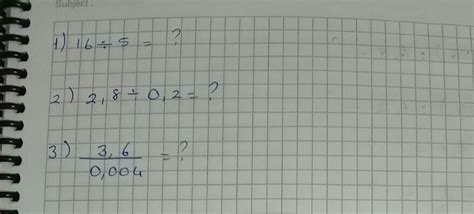 Subject :
1) 16 ÷ 5 = ?
2) 2,8 ÷ 0,2 = ?
3) 3,6
0,004 = ?